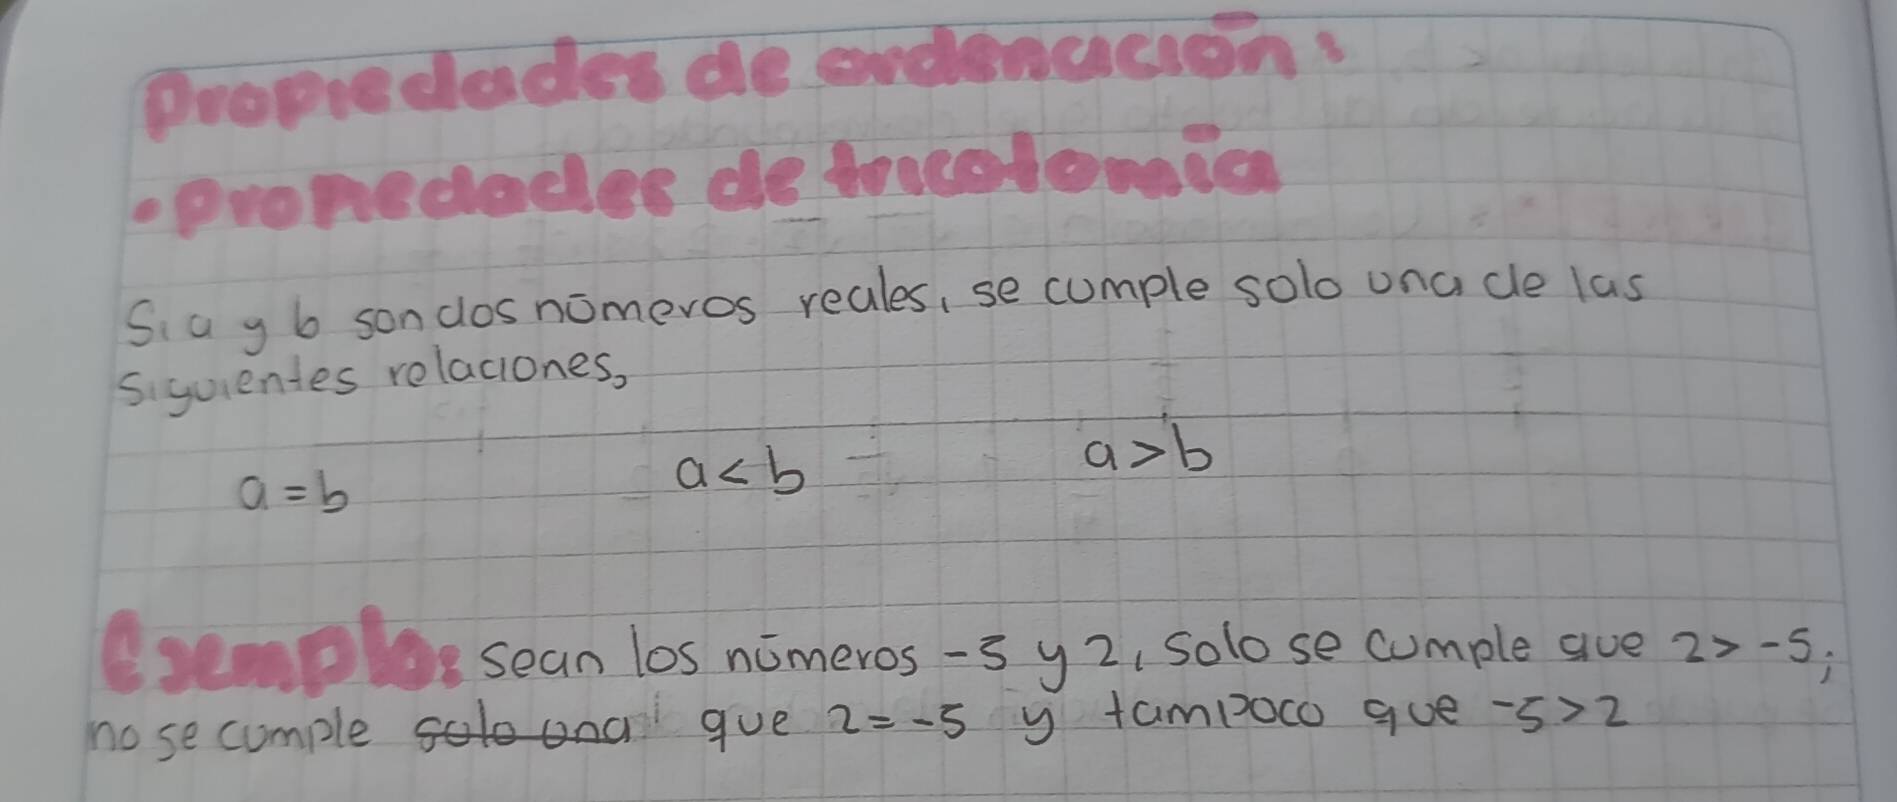 Propiedades de ordenación:
• Propiedades de tricotomía
Si a y b son dos números reales, se cumple solo una de las
siguientes relaciones,
a = b a < b a > b
Ejemplo: sean los números -5 y 2, solo se cumple que 2 > -5;
no se cumple solo una que 2 = -5 y tampoco que -5 > 2